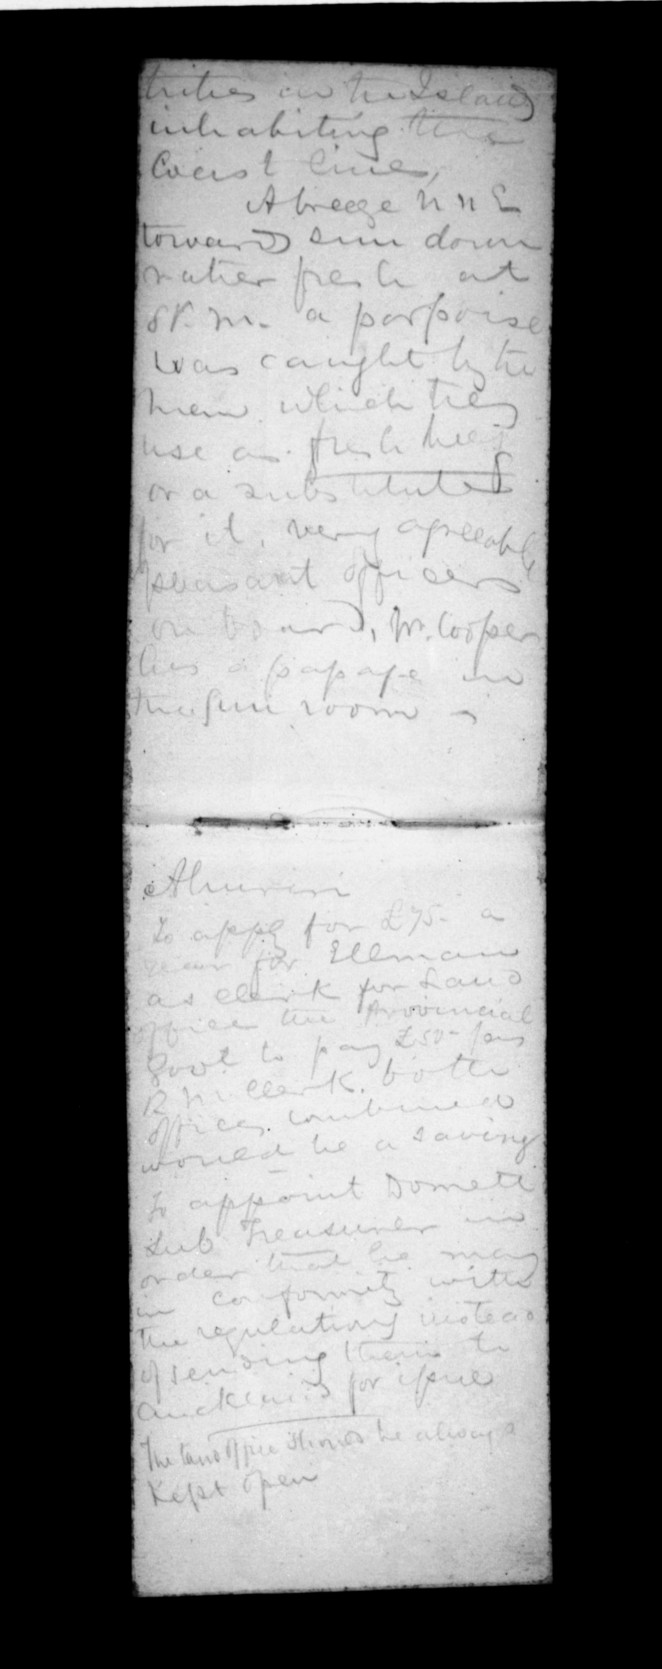 tribes in the Island
inhabiting the
Coast line,
A breeze N N E
toward sun down
rather fresh at
8 P.M. a porpoise
was caught by the
men which they
use as fresh beef
or a substitute
for it, very agreeable
pleasant officers
on board, Mr. Cooper
has a passage in
the Gun room -
Ahuriri
To apply for £75- a
year for Ellman
as clerk for Land
office the Provincial
Govt to pay £50-
R M Clerk. both
offices combined
would be a saving
To appoint Domett
Sub Treasurer in
order that he may
in conformity with
the regulations instead
of sending them to
Auckland for issue
The Land office should be always
Kept open